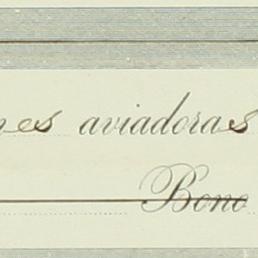 es aviadoras
Bono